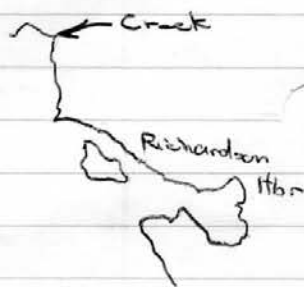 Creek
Richardson
Hbr